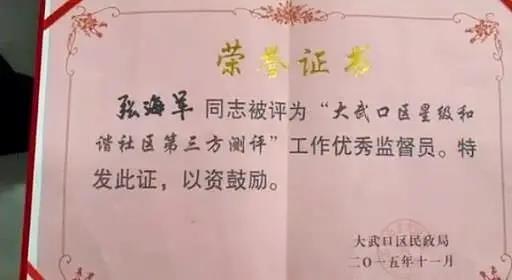 荣誉证书
张海军 同志被评为“大武口区星级和
谐社区第三方测评”工作优秀监督员。特
发此证，以资鼓励。
大武口区民政局
二〇一五年十一月